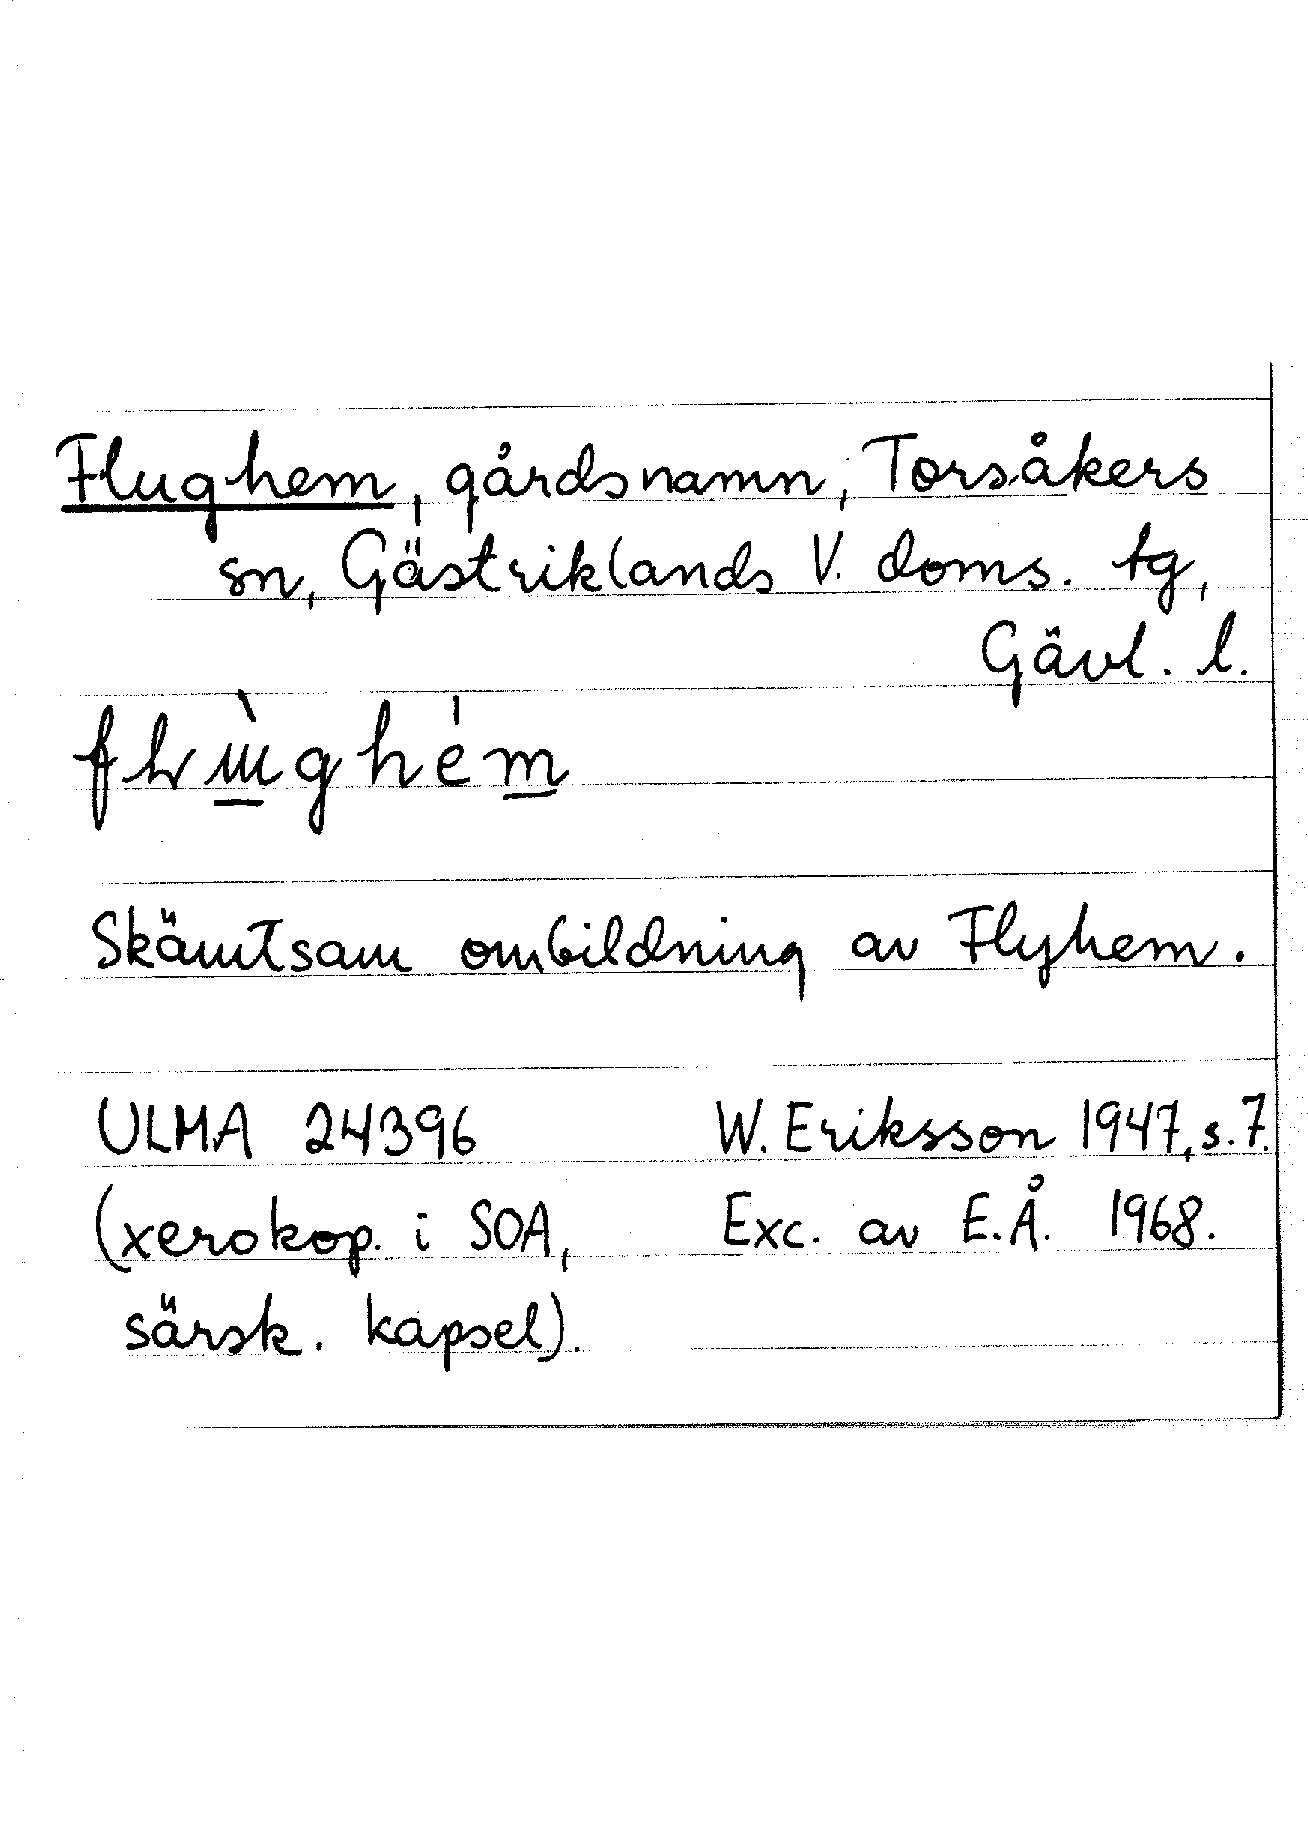 Flughem, gårdsnamn, Torsåkers
sn, Gästriklands V. doms. tg,
Gävl. l.
Skämtsam ombildning av Flyhem.
ULMA 24396 W. Eriksson 1947, s. 7.
(xerokop. i SOA, Exc. av E.Å. 1968.
särsk. kapsel).